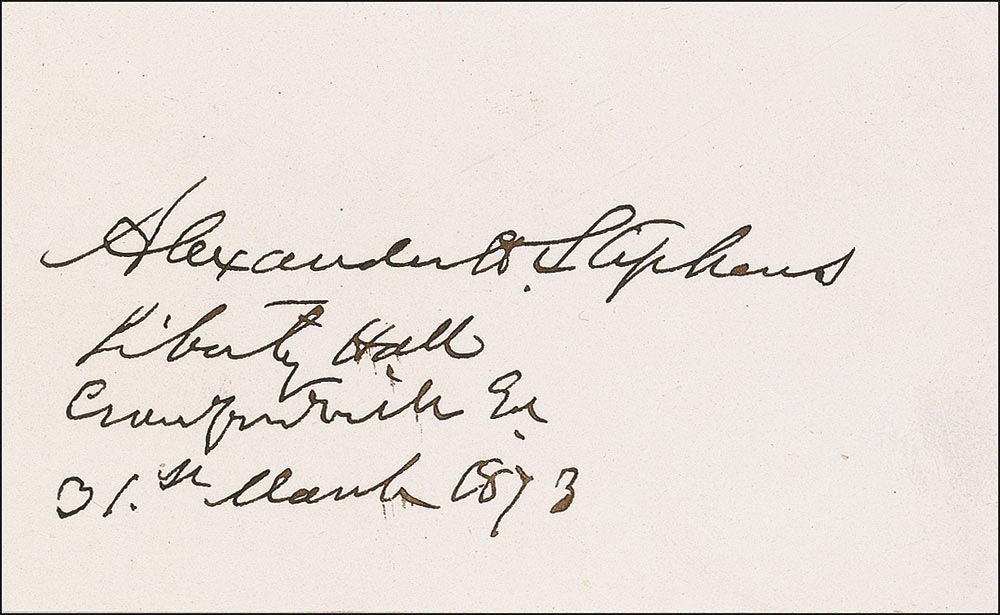 Alexander H. Stephens
Liberty Hall
Crawfordville Ga
31.st March 1873